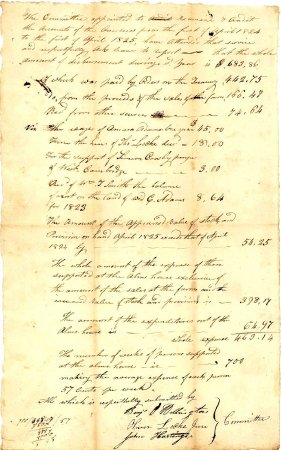 The Committee appointed to examine & Audit
the Accounts of the Overseers from the first of April 1824
to the first of April 1825 have Attended that service
and respectfully ask leave to report that the whole
amount of disbursement during sd year is $683,86
of which was paid by Orders on the Treasury 442,75
Do from the proceeds of the sales of the farm, 166,47
Recd from other sources 74,64
Viz the wages of Amos Adams one year 45,00
From the heirs of Thos Locke decd
For the support of Cooley pauper
of West Cambridge 3,00
Recd of Wm Smith the balance
of on the land of wd G. Adams 8,64
for 1823
The Amount of the Appraised Value of Stock and
Provision on hand April 1825 exceeds that of April
1824 by 56,25
The whole amount of the expense of those
supported at the alms house exclusive of
the amount of the sales at the farm and the
increased value of stock and provisions is 398,17
The amount of the expenditures out of the
Alms house is 64,97
whole expense 463,14
The number of weeks of persons supported
at the alms house is 700
making the average expense of each person
57 Cents per week
All which is respectfully submitted by
Benj O Wellington
Oliver Locke Junr
John Hastings
Committee